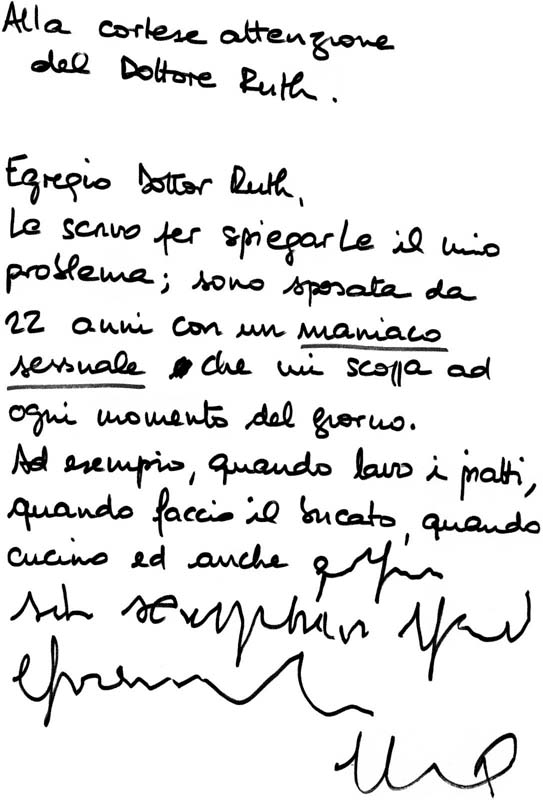 Alla cortese attenzione
del Dottore Ruth.
Egregio Dottor Ruth,
Le scrivo per spiegarLe il mio
problema; sono sposata da
22 anni con un maniaco
sessuale che mi scoppa ad
ogni momento del giorno.
Ad esempio, quando lavo i piatti,
quando faccio il bucato, quando
cucino ed anche